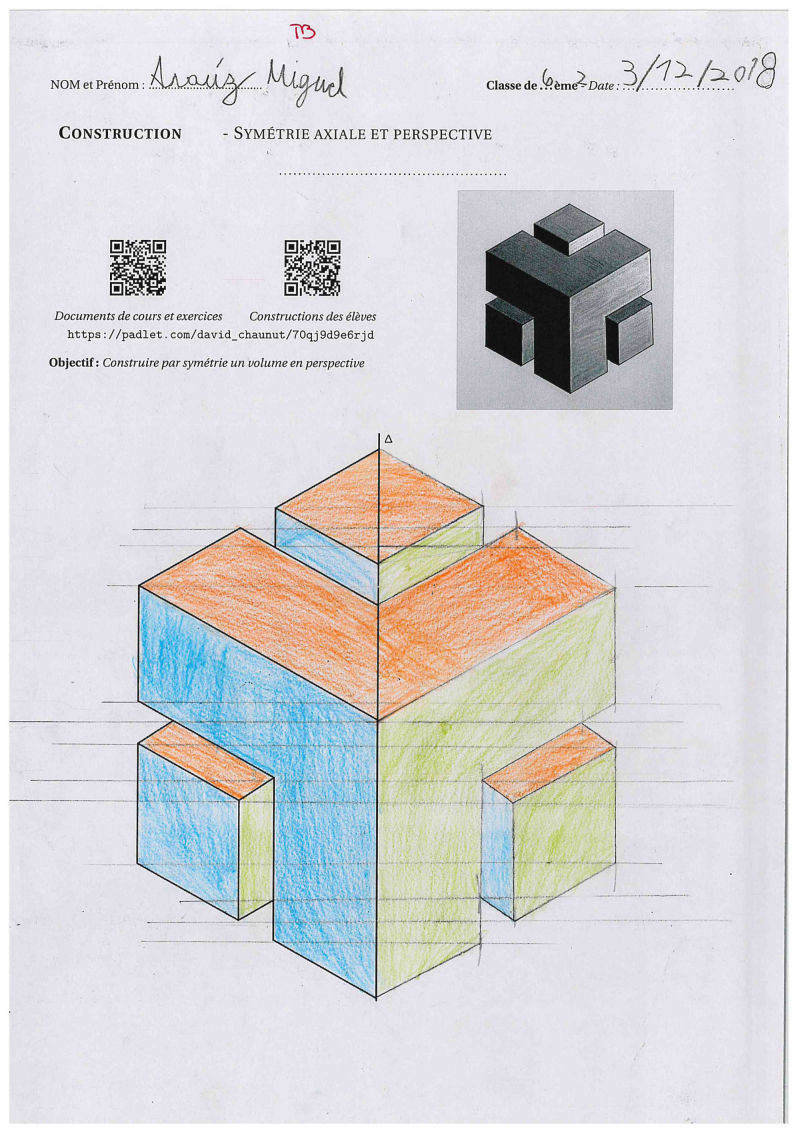 TB
NOM et Prénom : Araúz Miguel Classe de 6ème 2 Date : 3/12/2018
CONSTRUCTION - SYMÉTRIE AXIALE ET PERSPECTIVE
Documents de cours et exercices Constructions des élèves
https://padlet.com/david_chaunut/70qj9d9e6rjd
Objectif : Construire par symétrie un volume en perspective
Δ